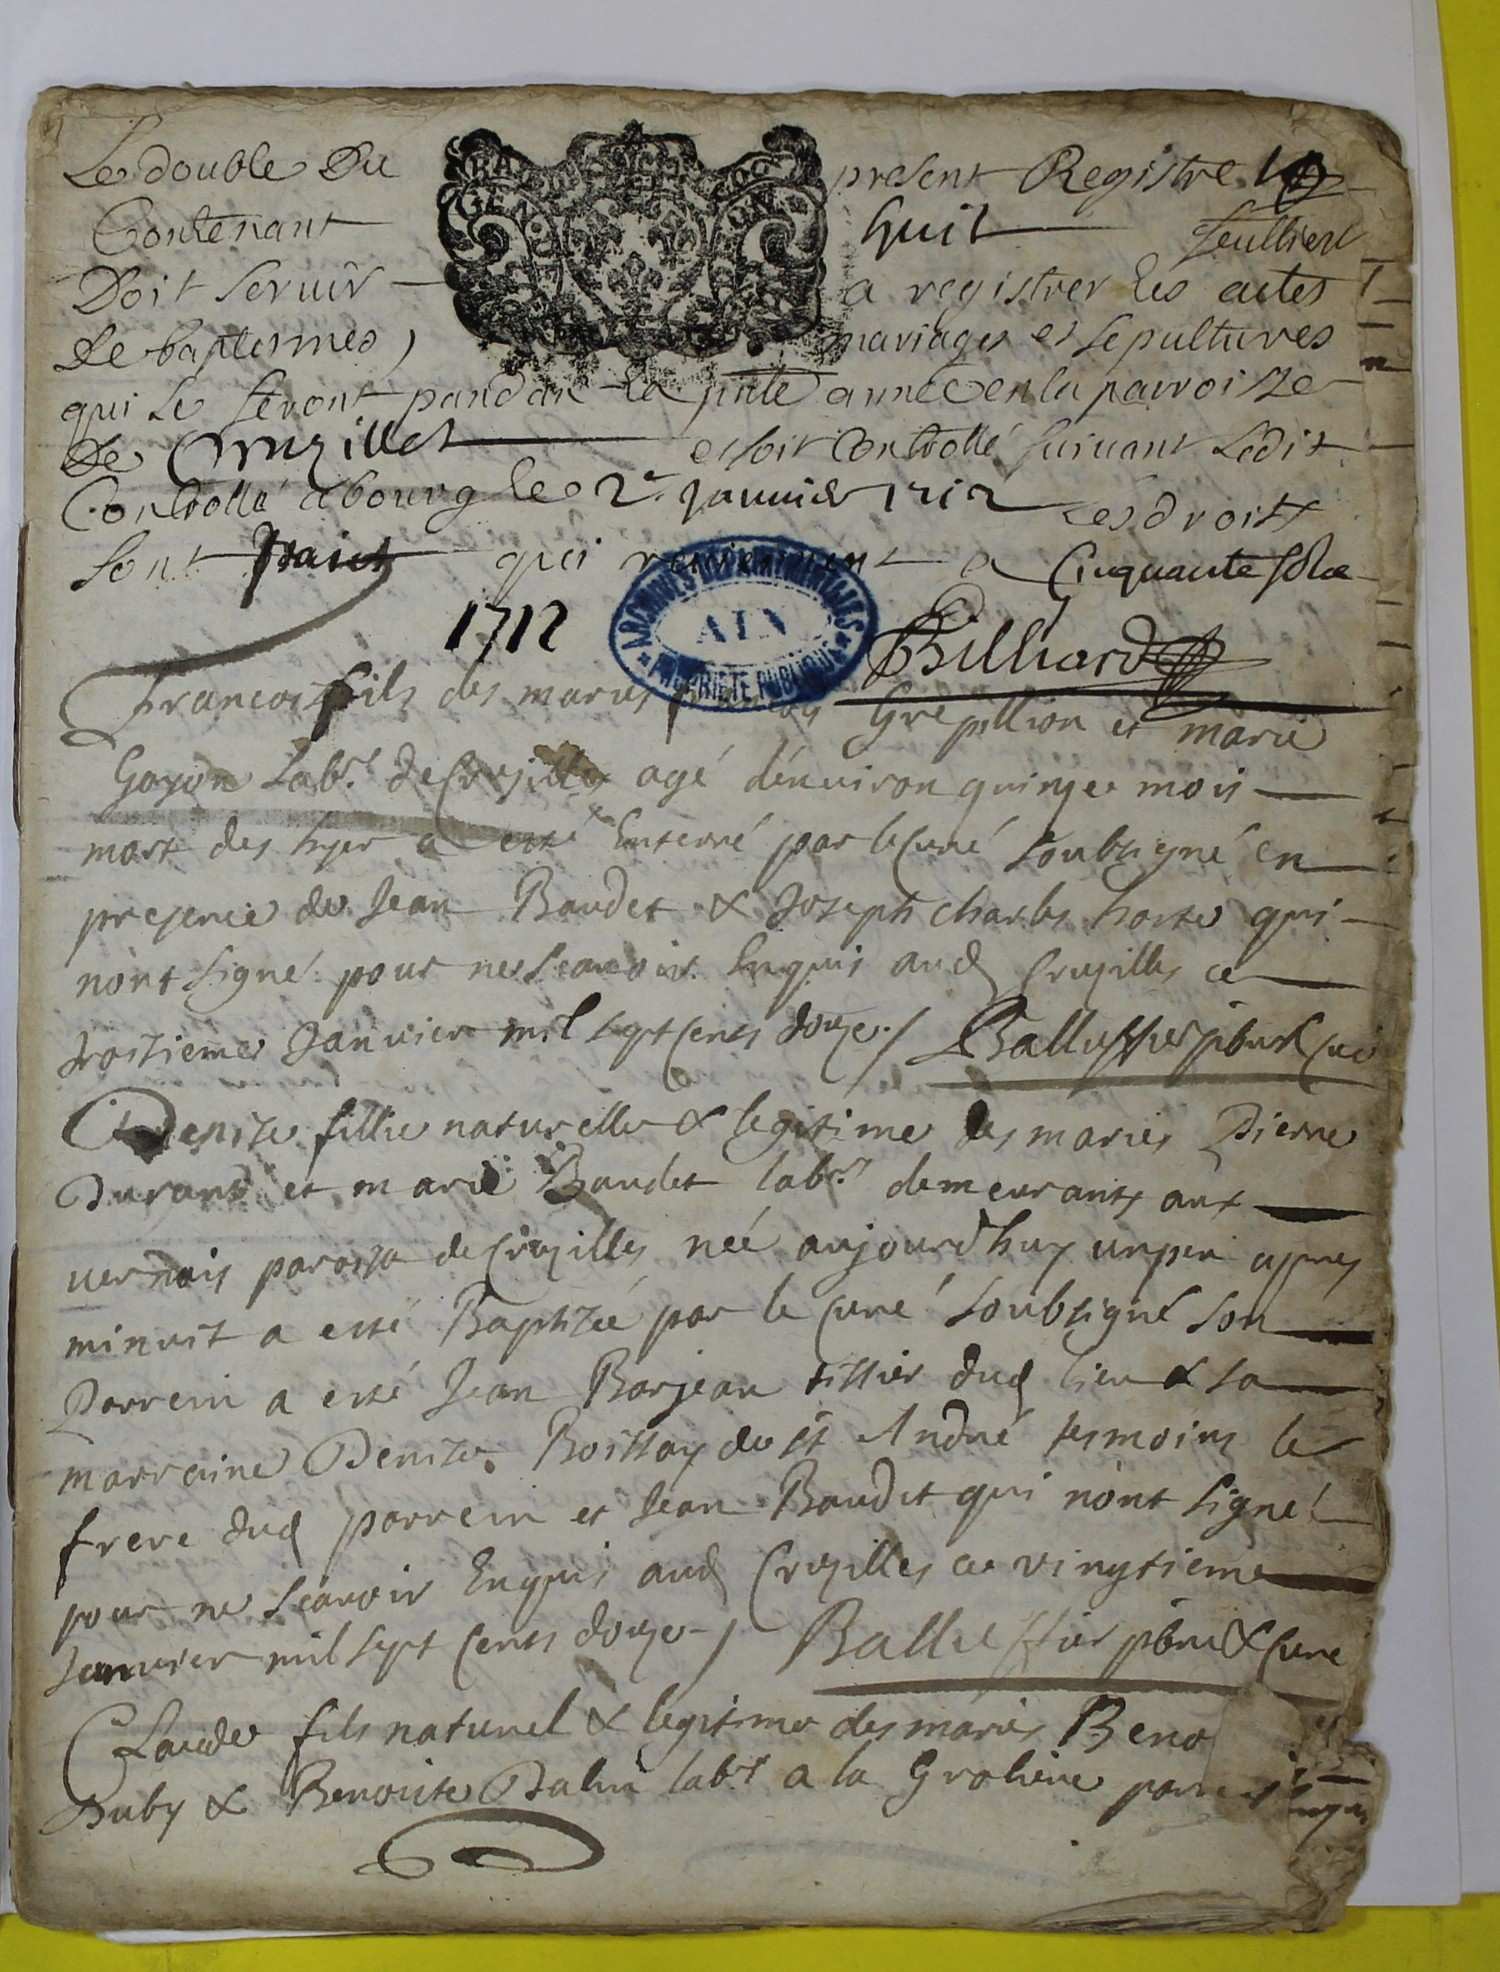 Le double Du present Registre
Contenant huit feulliert
Doit servir a registrer les actes
De baptesmes, mariages et sepultures
qui se feront pandan la pnte année en la parroisse
De Cruzilles et soit Controllé suivant Ledit
Controllé a bourg le 2e janvier 1712 les droits
sont paiés qui reviennent a Cinquante sols
1712
ARCHIVES DEPARTEMENTALES
AIN
PROPRIETE PUBLIQUE
Billiard
Francois fils des maries Grepillion et marie
Goyon Labrs de Cruzilles agé dénviron quinze mois
mort des hyer a esté Enterré par le Curé soubsigné en
presence de Jean Baudet & Joseph charles horte qui
nónt signé pour ne scavoir Enquis aud Cruzilles ce
troisieme Janvier mil sept cents douze / Balluffier pbre & Curé
Denise fillie naturelle & legitime des maries Pierre
Durand et marie Baudet labrs demeurants aux
vernois paroisse de Cruzilles née aujourdhuy un peu apres
minuit a esté Baptizée par le Curé soubsigné son
Parrein a esté Jean Barjean tissier dud lieu & sa
marraine Denise Boissay de st André tesmoins le
frere dud parrein et Jean Baudet qui nónt signé
pour ne scavoir Enquis aud Cruzilles ce vingtieme
Janvier mil sept cents douze / Balluffier pbre & Curé
Claude fils naturel & legitime des maries Beno
Buby & Benoite Palin labrs a la Groliere